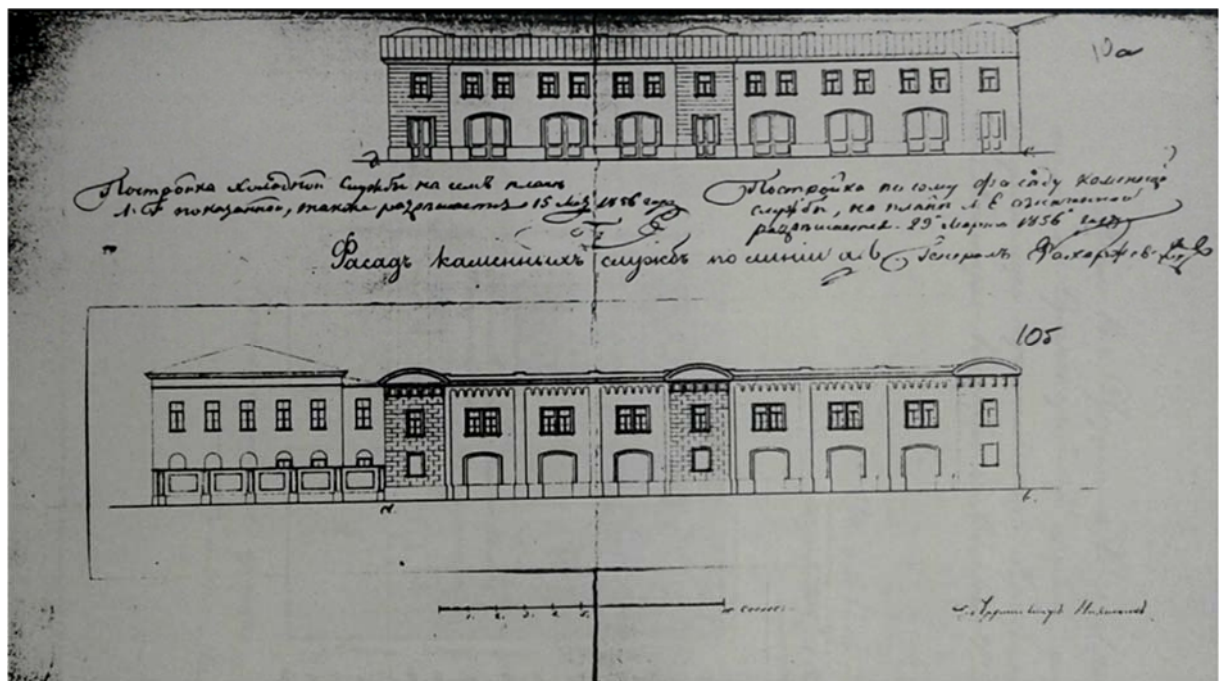 10а
Постройка холодной службы на семъ планѣ
показанной, также разрѣшается 15 Мая 1856 года
Постройка по сему фасаду каменной
службы, на планѣ Л. Е означенной
разрѣшается. 29 Марта 1856 года
Фасадъ каменныхъ службъ по линіи а.в.
Генералъ
10б
а.
в.
1. 2. 3. 4. 5.